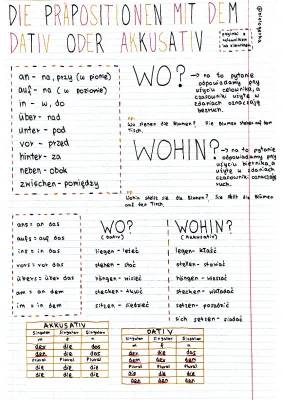 DIE PRÄPOSITIONEN MIT DEM
DATIV ODER AKKUSATIV
an - na, przy (w pionie)
auf - na (w poziomie)
in - w, do
über - nad
unter - pod
vor - przed
hinter - za
neben - obok
zwischen - pomiędzy
WO?
→ na to pytanie
odpowiadamy przy
użyciu celownika, a
czasowniki użyte w
zdaniach oznaczają
bezruch.
Wo stehen die Blumen? Die Blumen stehen auf dem
Tisch.
WOHIN?
→ na to pytanie
odpowiadamy przy
użyciu biernika, a
użyte w zdaniach
czasowniki oznaczają
ruch.
Wohin stellt sie die Blumen? Sie stellt die Blumen
auf den Tisch.
ans = an das
aufs = auf das
ins = in das
vors = vor das
übers = über das
am = an dem
im = in dem
WO?
(Dativ)
liegen - leżeć
stehen - stać
hängen - wisieć
stecken - tkwić
sitzen - siedzieć
WOHIN?
(Akkusativ)
legen - kłaść
stellen - stawiać
hängen - wieszać
stecken - wkładać
setzen - posadzić
sich setzen - siadać
AKKUSATIV
Singular Singular Singular
m f n
den die das
Plural Plural Plural
die die die
DATIV
Singular Singular Singular
m f n
Plural Plural Plural